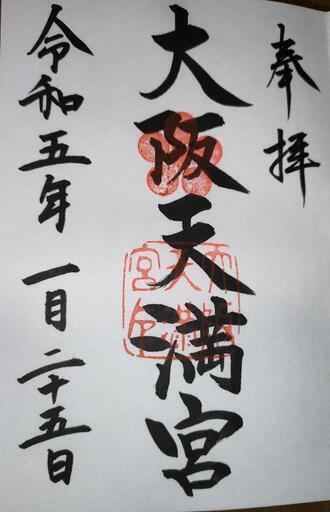 奉拝
大阪天満宮
令和五年 一月二十五日